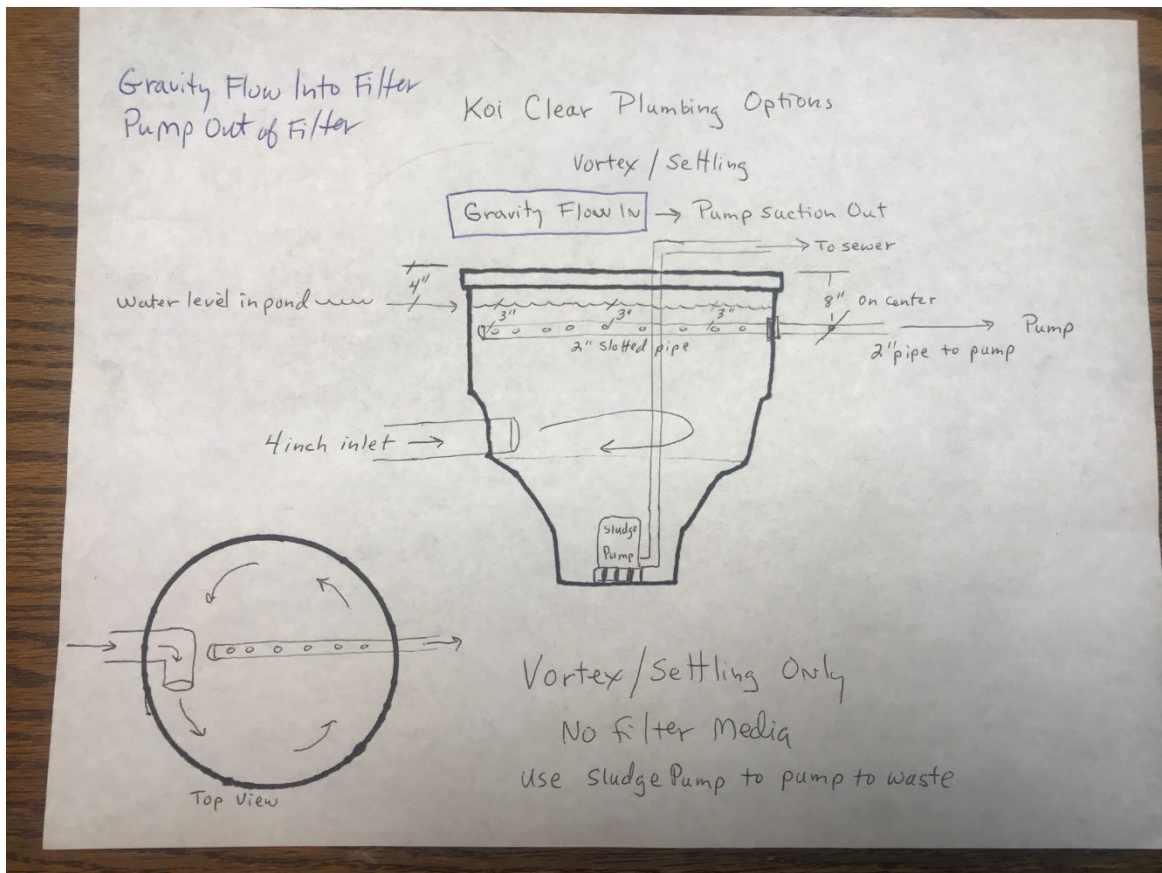 Gravity Flow Into Filter
Pump Out of Filter
Koi Clear Plumbing Options
Vortex / Settling
Gravity Flow In → Pump suction Out
→ To sewer
4"
water level in pond
8" on center
3" 3" 3"
→ Pump
2" slotted pipe
2" pipe to pump
4 inch inlet →
Sludge
Pump
Top View
Vortex/Settling Only
No Filter Media
Use Sludge Pump to pump to waste